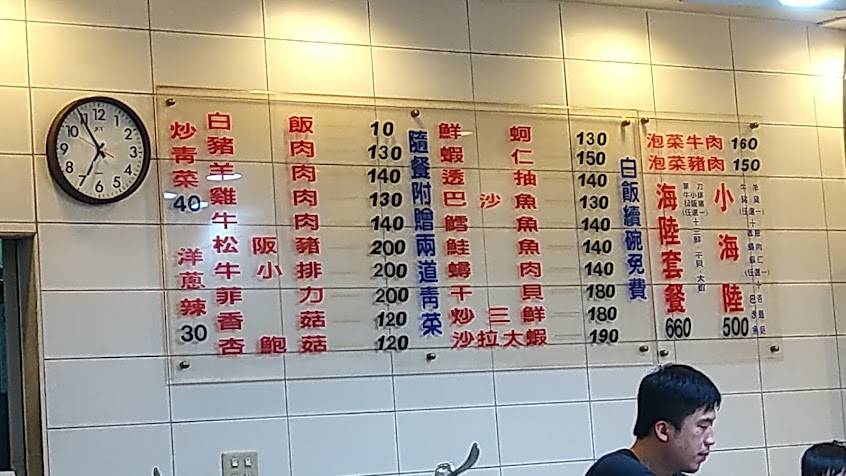 炒青菜
40
洋蔥辣
30
白飯 10
豬肉 130
羊肉 140
雞肉 130
牛肉 140
松阪豬 200
牛小排 200
菲力 200
香菇 120
杏鮑菇 120
隨餐附贈兩道青菜
鮮蚵 130
蝦仁 150
透抽 140
巴沙魚 130
鱈魚 140
鮭魚 140
鱘肉 140
干貝 180
炒三鮮 180
沙拉大蝦 190
白飯續碗免費
泡菜牛肉 160
泡菜豬肉 150
海陸套餐
660
小海陸
500